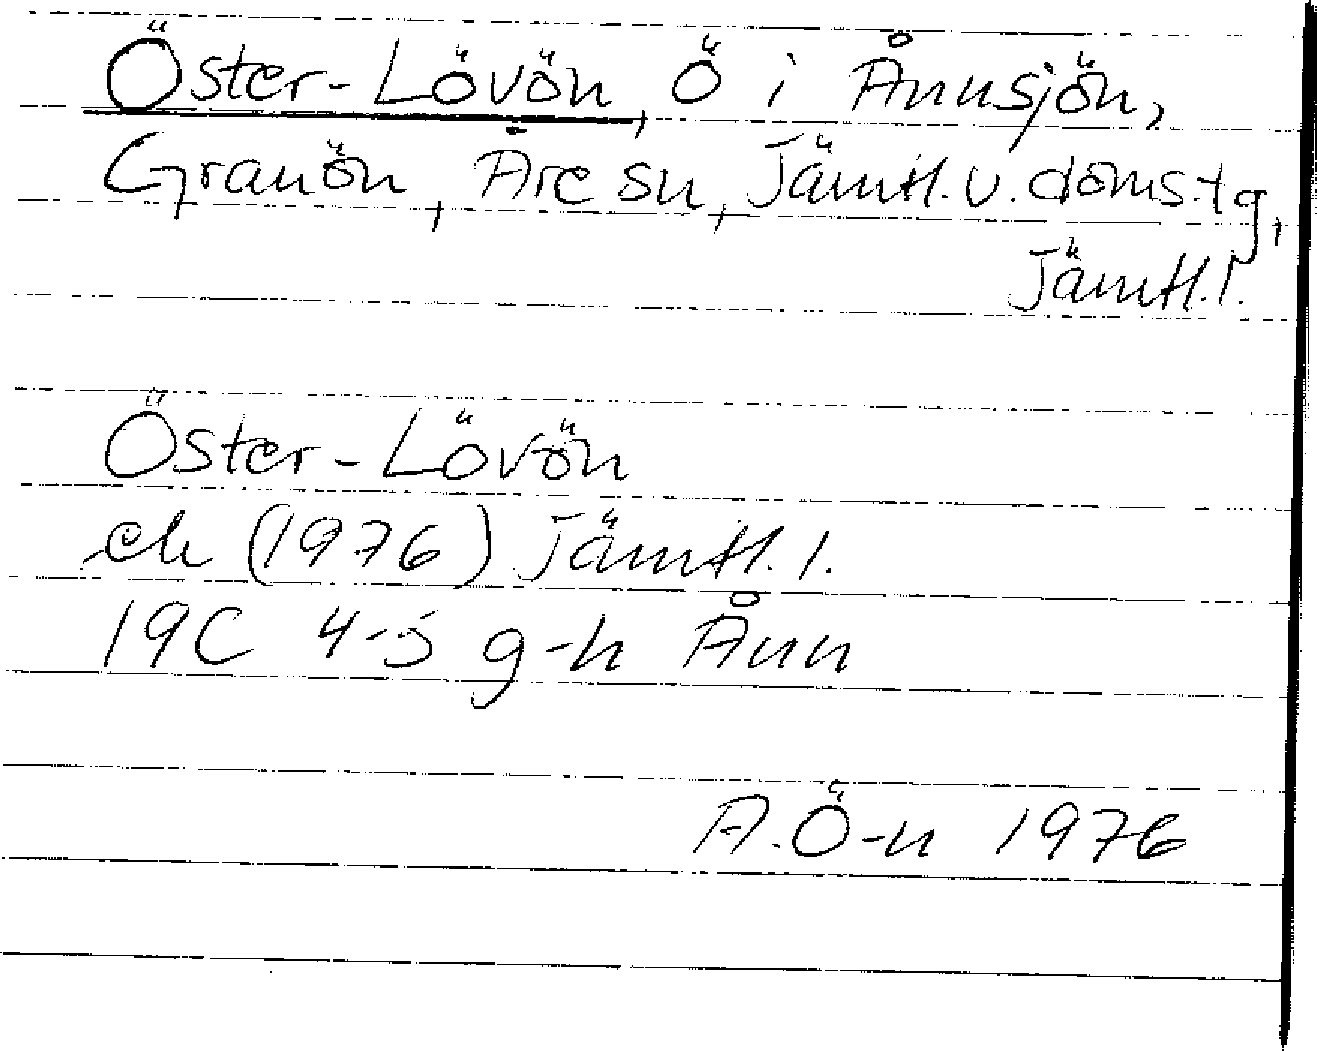 Öster-Lövön, Ö i Ånnsjön,
Granön, Åre sn, Jämtl. v. doms.tg,
Jämtl.l.
Öster-Lövön
ek (1976) Jämtl. l.
19C 4-5 g-h Ånn
A.Ö-n 1976